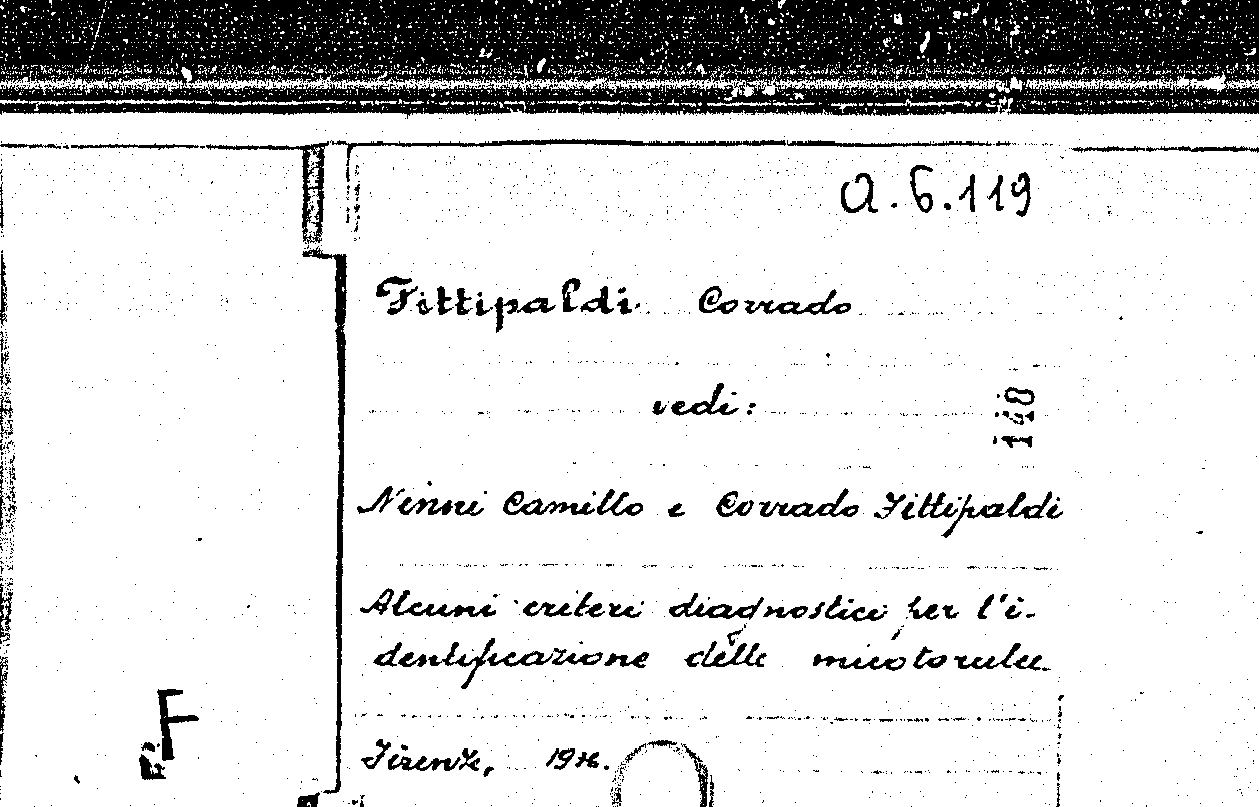 a.6.119
Fittipaldi Corrado
vedi:
140
Ninni Camillo e Corrado Fittipaldi
Alcuni criteri diagnostici per l'i-
dentificazione delle micotorulee
F
Firenze,